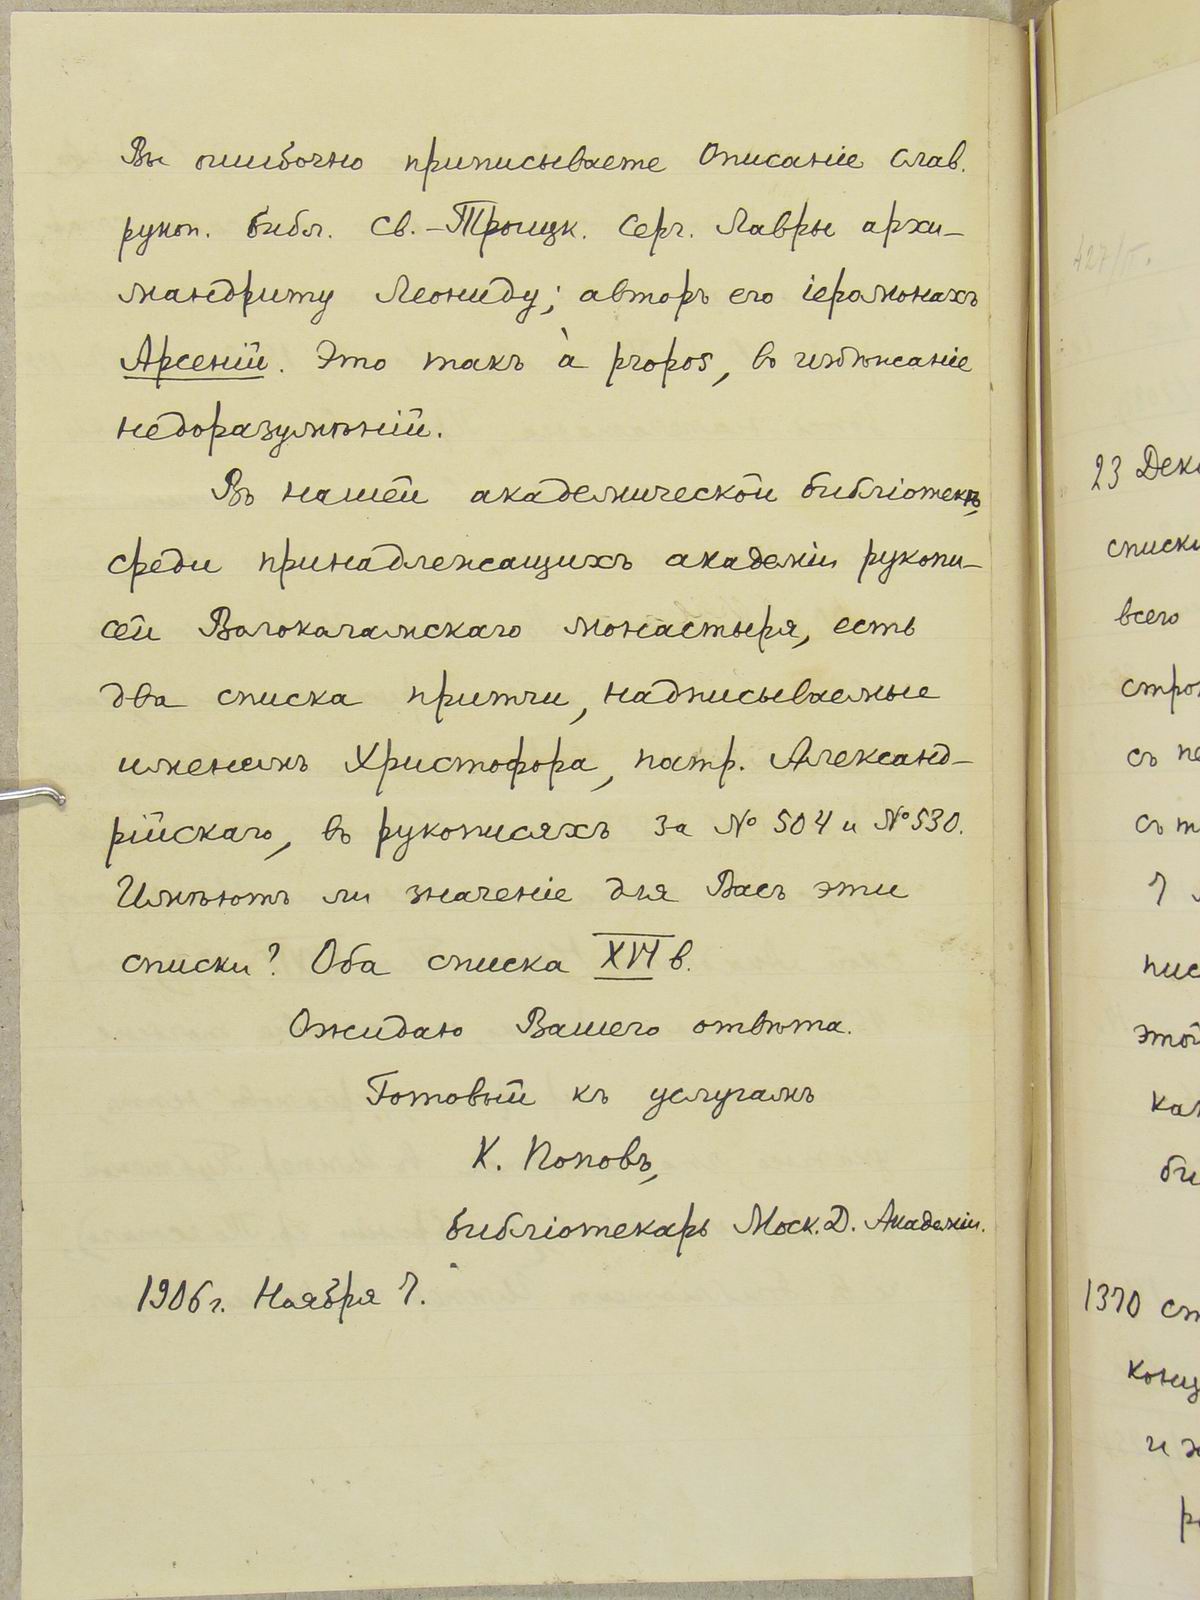 Вы ошибочно приписываете Описаніе слав.
рукоп. библ. Св.-Троицк. Серг. Лавры архи-
мандриту Леониду; авторъ его іеромонахъ
Арсеній. Это такъ à propos, во избѣжаніе
недоразумѣній.
Въ нашей академической библіотекѣ,
среди принадлежащихъ академіи рукопи-
сей Волоколамскаго монастыря, есть
два списка притчи, надписываемые
именемъ Христофора, патр. Александ-
рійскаго, въ рукописяхъ за № 504 и № 530.
Имѣютъ ли значеніе для Васъ эти
списки? Оба списка XVI в.
Ожидаю Вашего отвѣта.
Готовый къ услугамъ
К. Поповъ,
библіотекарь Моск. Д. Академіи.
1906 г. Ноября 7.
427/I.
23 Дек
списки
всего
стро
съ пе
съ т
7
пис
этой
ка
би
1370 ст
конц
и